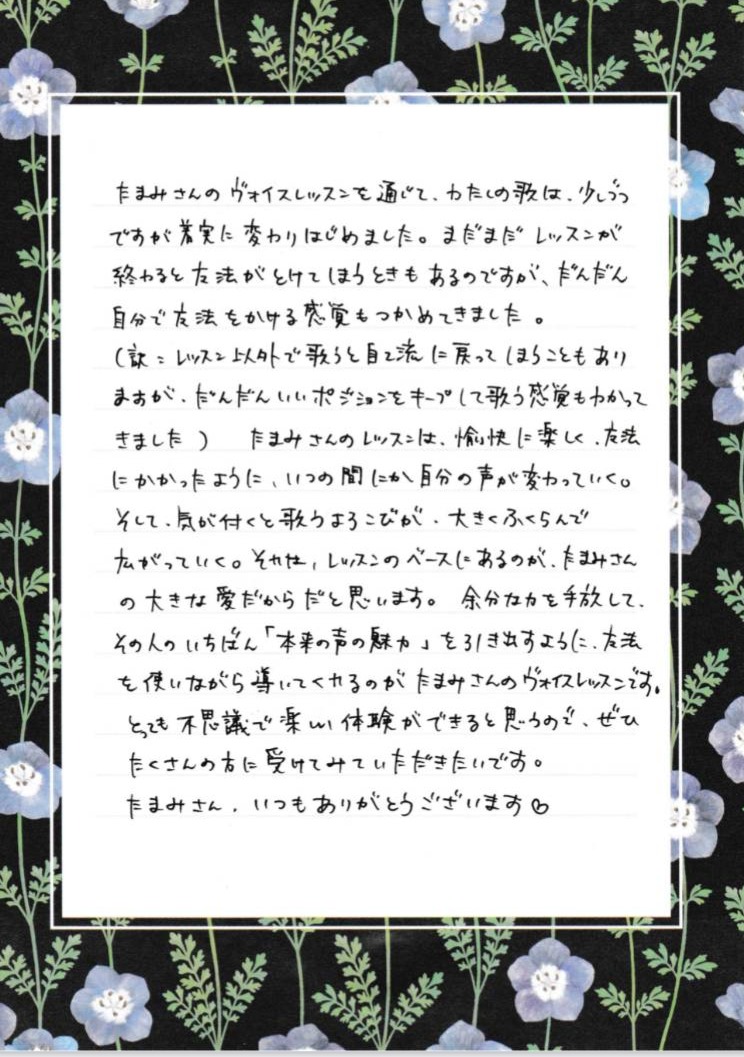 たまみさんのヴォイスレッスンを通じて、わたしの歌は、少しづつ
ですが着実に変わりはじめました。まだまだ レッスンが
終わると魔法がとけてしまうときもあるのですが、だんだん
自分で魔法をかける感覚もつかめてきました。
(訳：レッスン以外で歌うと自己流に戻ってしまうこともあり
ますが、だんだんいいポジションをキープして歌う感覚もわかって
きました) たまみさんのレッスンは、愉快に楽しく、魔法
にかかったように、いつの間にか自分の声が変わっていく。
そして、気が付くと歌うよろこびが、大きくふくらんで
広がっていく。それは、レッスンのベースにあるのが、たまみさん
の大きな愛だからだと思います。 余分な力を手放して、
その人のいちばん「本来の声の魅力」を引き出すように、魔法
を使いながら導いてくれるのがたまみさんのヴォイスレッスンです。
とっても不思議で楽しい体験ができると思うので、ぜひ
たくさんの方に受けてみていただきたいです。
たまみさん、いつもありがとうございます♡